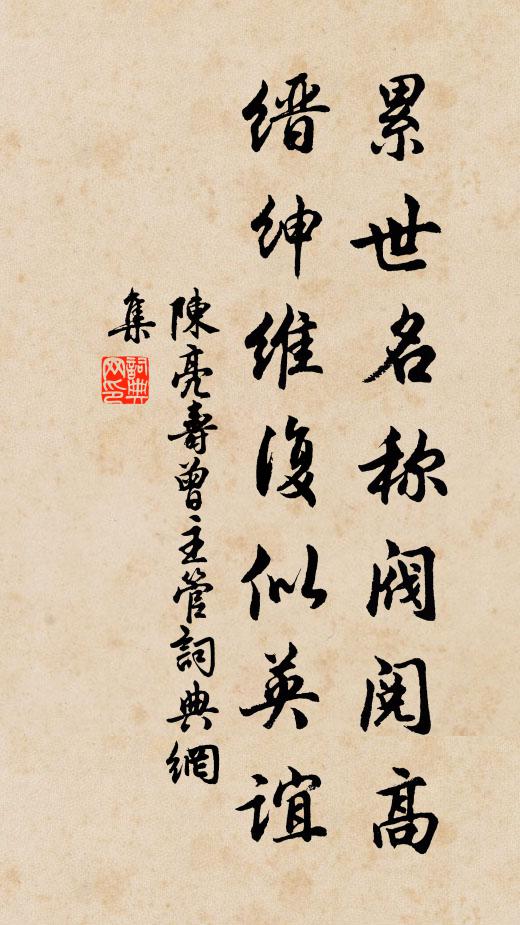 累世名称阀阅高
缙绅维复似英谊
陳亮壽曾主管詞典網
集
詞典网印